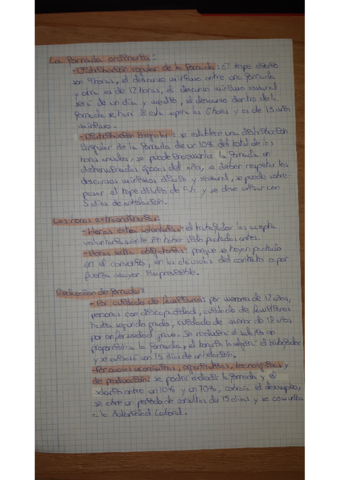 La Jornada ordinaria:
- Distribución regular de la Jornada: el tope diario
son 9 horas, el descanso mínimo entre una jornada
y otra es de 12 horas, el descanso mínimo semanal
será de un día y medio, el descanso dentro de la
jornada se hará si esta supera las 6 horas y es de 15 min
mínimo.
- Distribución irregular: se establece una distribución
irregular de la jornada de un 10% del total de las
horas anuales, se puede incrementar la jornada en
determinadas épocas del año, se deben respetar los
descansos mínimos diario y semanal, se puede sobre-
pasar el tope diario de 9h y se debe avisar con
5 días de antelación.
Las horas extraordinarias:
- Horas extra voluntarias: el trabajador las acepta
voluntariamente al haber sido pactadas antes.
- Horas extra obligatorias: porque se hayan pactado
en el convenio, en la del contrato o por
fuerza mayor. Imprevisible.
Reducción de jornada:
- Por cuidado de familiares: por menores de 12 años,
personas con discapacidad, cuidado de familiares
hasta segundo grado, cuidado de menor de 18 años
por enfermedad grave. Se reducirá el salario en
proporción a la jornada, el horario lo elegirá el trabajador
y se avisará con 15 días de antelación.
- Por causas económicas, organizativas, tecnológicas y
de producción: se podrá reducir la jornada y el
salario entre un 10% y un 70%, desempleo,
se abre un período de consultas de 15 días y se comunica
a la Autoridad Laboral.